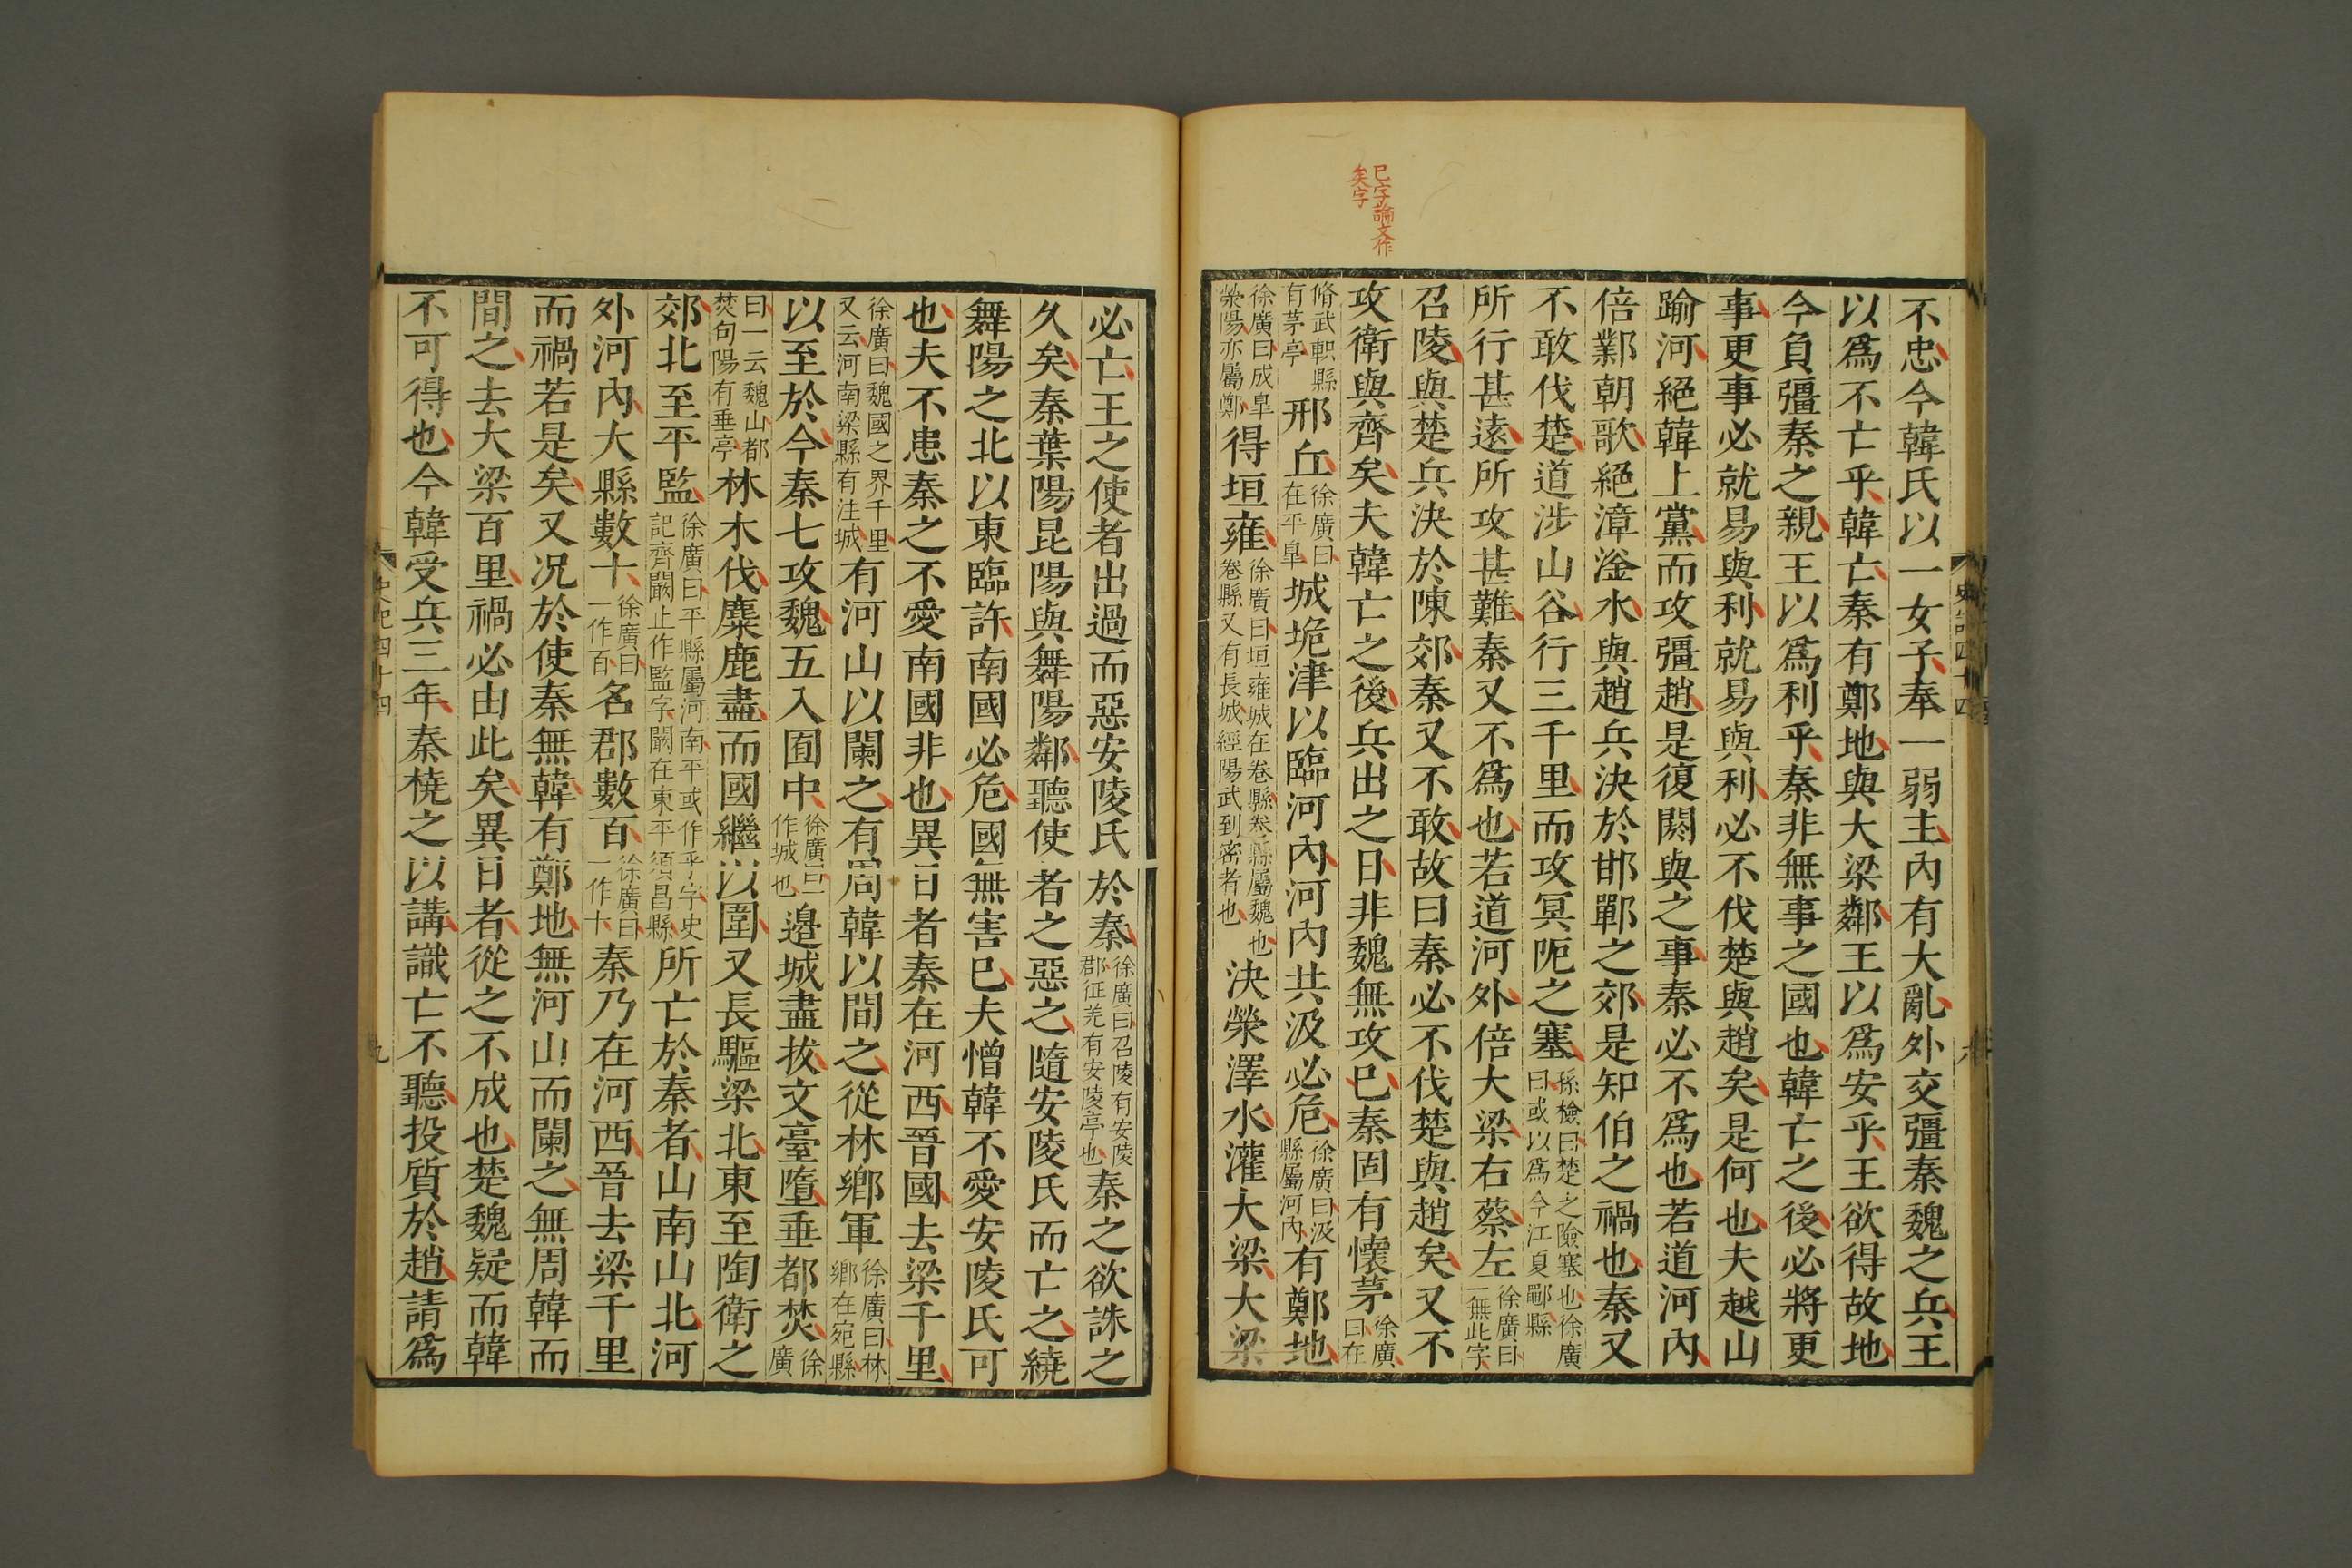 巳字論文作
矣字
不忠今韓氏以一女子奉一弱主內有大亂外交彊秦魏之兵王
以爲不亡乎韓亡秦有鄭地與大梁鄰王以爲安乎王欲得故地
今負彊秦之親王以爲利乎秦非無事之國也韓亡之後必將更
事更事必就易與利就易與利必不伐楚與趙矣是何也夫越山
踰河絕韓上黨而攻彊趙是復閼與之事秦必不爲也若道河內
倍鄴朝歌絕漳滏水與趙兵決於邯鄲之郊是知伯之禍也秦又
不敢伐楚道涉山谷行三千里而攻冥阨之塞孫檢曰楚之險塞也徐廣曰或以爲今江夏鄳縣
所行甚遠所攻甚難秦又不爲也若道河外倍大梁右蔡左徐廣曰一無此字
召陵與楚兵決於陳郊秦又不敢故曰秦必不伐楚與趙矣又不
攻衛與齊矣夫韓亡之後兵出之日非魏無攻巳秦固有懷茅徐廣曰在
脩武軹縣有茅亭邢丘徐廣曰在平皐城垝津以臨河內河內共汲必危徐廣曰汲縣屬河內有鄭地
徐廣曰成皐滎陽亦屬鄭得垣雍徐廣曰垣雍城在卷縣卷縣屬魏也卷縣又有長城經陽武到密者也決滎澤水灌大梁大梁
必亡王之使者出過而惡安陵氏於秦徐廣曰召陵有安陵郡征羌有安陵亭也秦之欲誅之
久矣秦葉陽昆陽與舞陽鄰聽使者之惡之隨安陵氏而亡之繞
舞陽之北以東臨許南國必危國無害巳夫憎韓不愛安陵氏可
也夫不患秦之不愛南國非也異日者秦在河西晉國去梁千里
徐廣曰魏國之界千里又云河南梁縣有注城有河山以闌之有周韓以間之從林鄉軍徐廣曰林鄉在宛縣
以至於今秦七攻魏五入囿中徐廣曰一作城也邉城盡拔文臺墮垂都焚徐廣
曰一云魏山都焚句陽有垂亭林木伐麋鹿盡而國繼以圍又長驅梁北東至陶衛之
郊北至平監徐廣曰平縣屬河南平或作乎字史記齊闞止作監字闞在東平須昌縣所亡於秦者山南山北河
外河內大縣數十徐廣曰一作百名郡數百徐廣曰一作十秦乃在河西晉去梁千里
而禍若是矣又况於使秦無韓有鄭地無河山而闌之無周韓而
間之去大梁百里禍必由此矣異日者從之不成也楚魏疑而韓
不可得也今韓受兵三年秦橈之以講識亡不聽投質於趙請爲
史記四十四
九